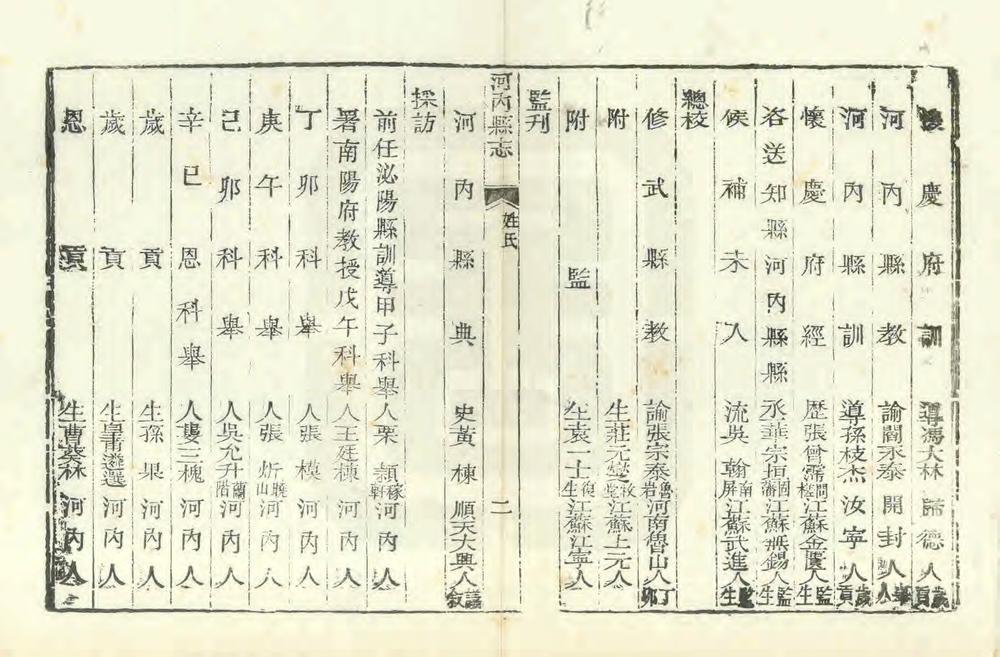 懷慶府訓導馮大林歸德人歲貢
河內縣教諭閻永泰開封人舉人
河內縣訓導孫枝杰汝寧人歲貢
懷慶府經歷張曾霈江蘇金匱人監生
咨送知縣河內縣縣丞華宗垣江蘇無錫人監生
候補未入流吳翰南屏江蘇武進人監生
總校
修武縣教諭張宗泰魯岩河南魯山人丁卯
附生莊元燮江蘇上元人
附監生袁一士江蘇江寧人
監刊
河內縣志 姓氏 二
河內縣典史黃棟順天大興人議敘
採訪
前任泌陽縣訓導甲子科舉人栗穎稼軒河內人
署南陽府教授戊午科舉人王廷棟河內人
丁卯科舉人張模河內人
庚午科舉人張炘河內人
己卯科舉人吳允升蘭階河內人
辛巳恩科舉人婁三槐河內人
歲貢生孫果河內人
歲貢生皇甫遴選河內人
恩貢生曹葵林河內人